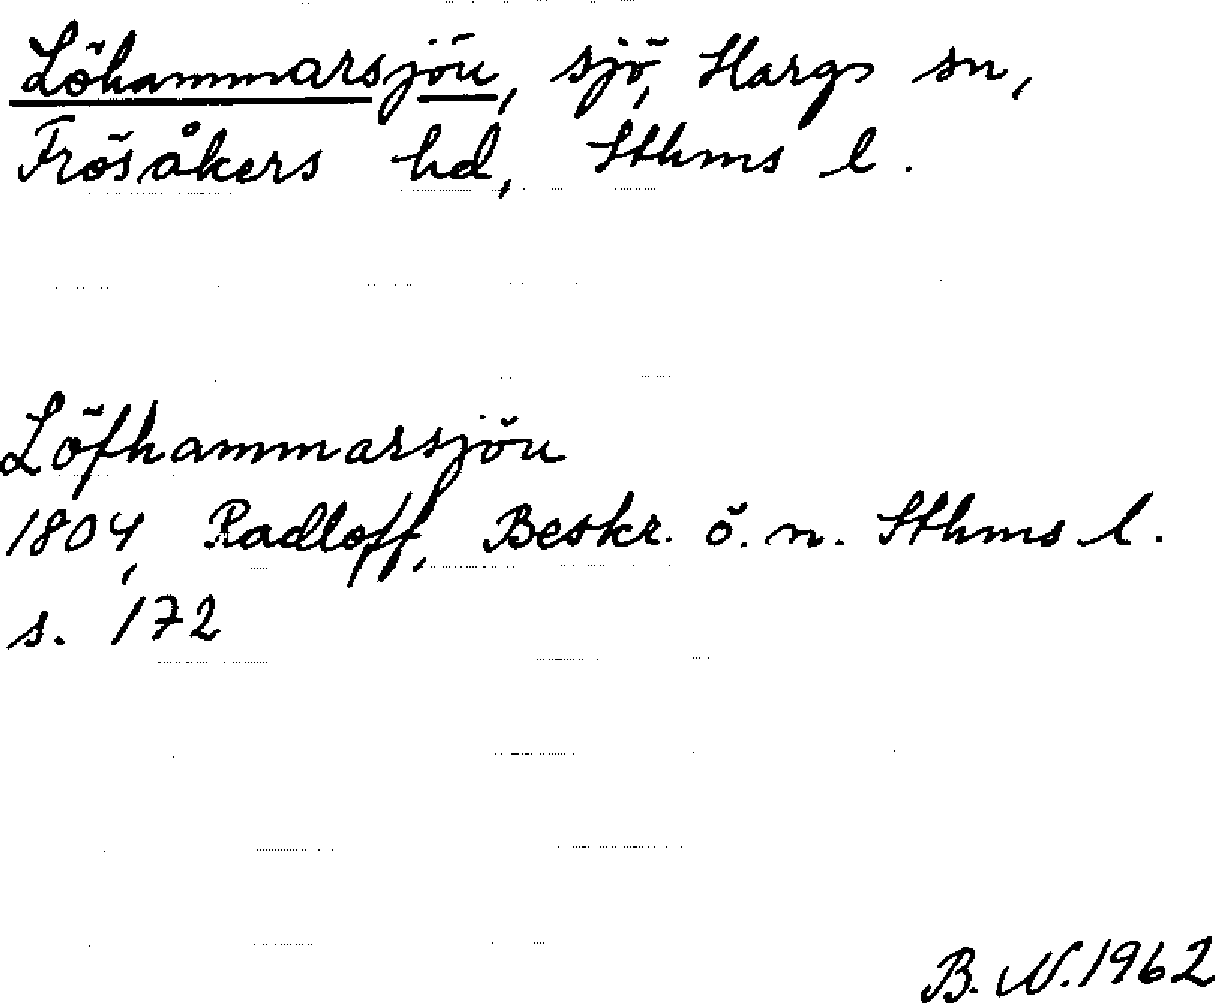 Löhammarsjön, sjö, Hargs sn,
Frösåkers hd, Sthms l.
Löfhammarsjön
1804, Radloff, Beskr. ö. n. Sthms l.
s. 172
B. N. 1962